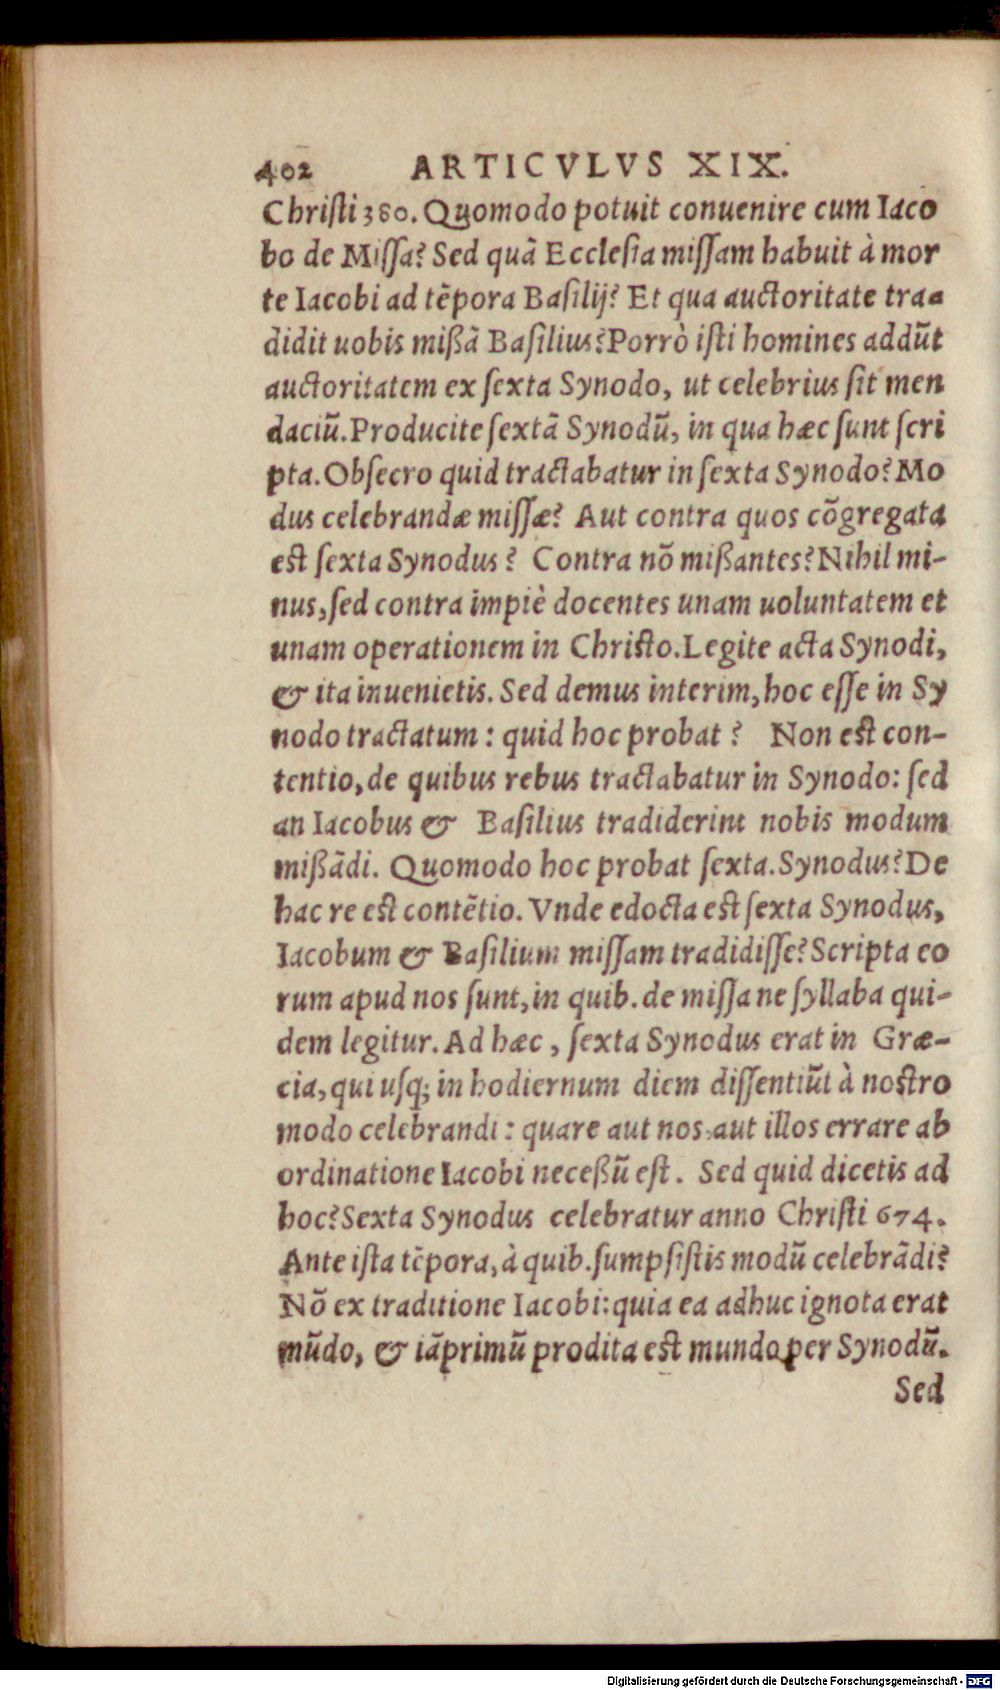 402 ARTICVLVS XIX.
Chriſti 380. Quomodo potuit conuenire cum Iaco
bo de Miſſa? Sed quã Eccleſia miſſam habuit à mor
te Iacobi ad tẽpora Baſilij? Et qua auctoritate tra=
didit uobis mißã Baſilius? Porrò iſti homines addũt
auctoritatem ex ſexta Synodo, ut celebrius ſit men
daciũ. Producite ſextã Synodũ, in qua hæc ſunt ſcri
pta. Obſecro quid tractabatur in ſexta Synodo? Mo
dus celebrandæ miſſæ? Aut contra quos cõgregata
est ſexta Synodus? Contra nõ mißantes? Nihil mi-
nus, ſed contra impiè docentes unam uoluntatem et
unam operationem in Christo. Legite acta Synodi,
& ita inuenietis. Sed demus interim, hoc eſſe in Sy
nodo tractatum: quid hoc probat? Non est con-
tentio, de quibus rebus tractabatur in Synodo: ſed
an Iacobus & Baſilius tradiderint nobis modum
mißãdi. Quomodo hoc probat ſexta. Synodus? De
hac re est contẽtio. Vnde edocta est ſexta Synodus,
Iacobum & Baſilium miſſam tradidiſſe? Scripta eo
rum apud nos ſunt, in quib. de miſſa ne ſyllaba qui-
dem legitur. Ad hæc, ſexta Synodus erat in Græ-
cia, qui uſq; in hodiernum diem diſſentiũt à nostro
modo celebrandi: quare aut nos aut illos errare ab
ordinatione Iacobi neceßũ eſt. Sed quid dicetis ad
hoc? Sexta Synodus celebratur anno Chriſti 674.
Ante iſta tẽpora, à quib. ſumpſiſtis modũ celebrãdi?
Nõ ex traditione Iacobi: quia ea adhuc ignota erat
mũdo, & iãprimũ prodita est mundo per Synodũ.
Sed
Digitalisierung gefördert durch die Deutsche Forschungsgemeinschaft - DFG